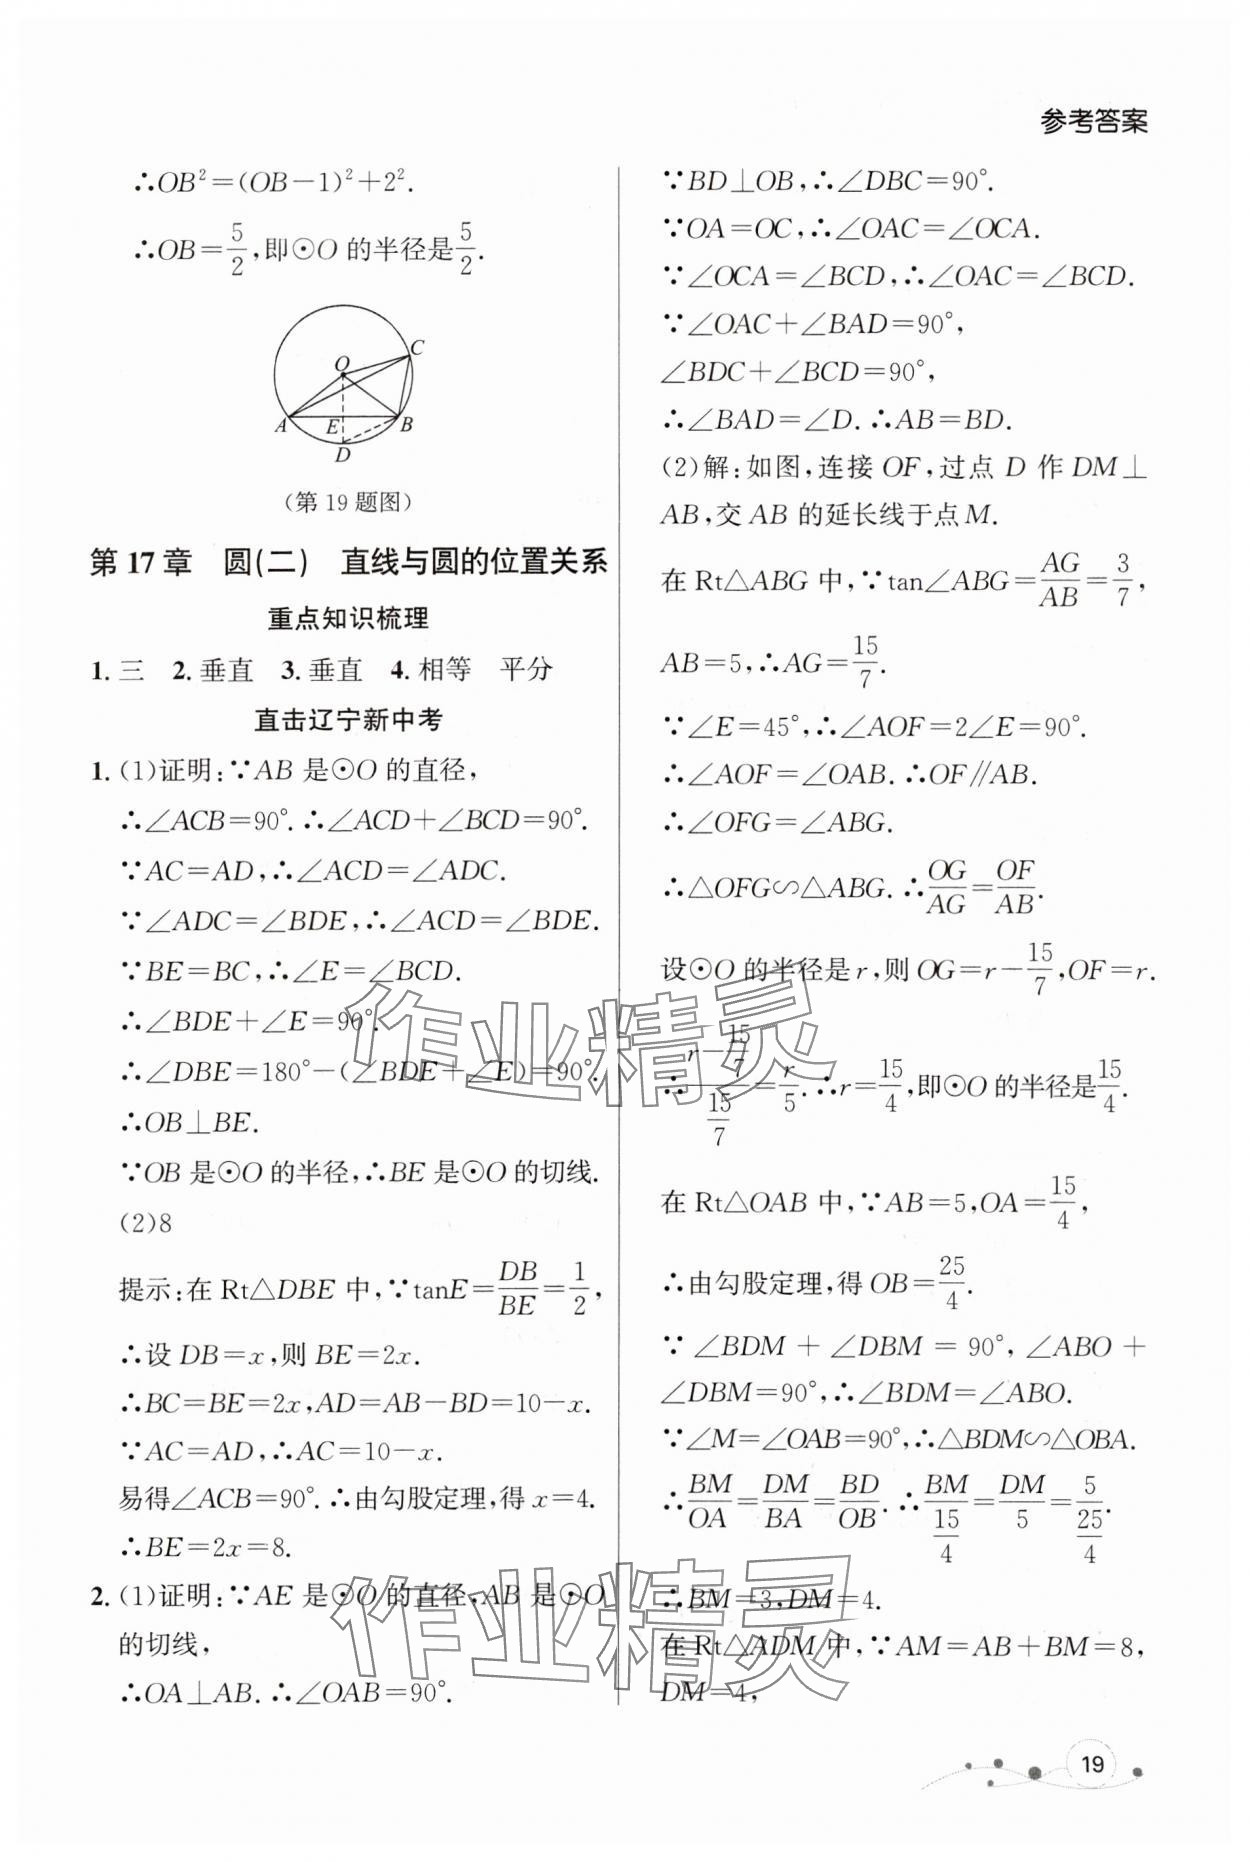 参考答案
∴OB²=(OB-1)²+2².
∴OB=5/2,即⊙O 的半径是5/2.
O
C
A
E
B
D
(第 19 题图)
第 17 章　圆(二)　直线与圆的位置关系
重点知识梳理
1. 三　2. 垂直　3. 垂直　4. 相等　平分
直击辽宁新中考
1. (1)证明:∵AB 是⊙O 的直径,
∴∠ACB=90°. ∴∠ACD+∠BCD=90°.
∵AC=AD,∴∠ACD=∠ADC.
∵∠ADC=∠BDE,∴∠ACD=∠BDE.
∵BE=BC,∴∠E=∠BCD.
∴∠BDE+∠E=90°.
∴∠DBE=180°-(∠BDE+∠E)=90°.
∴OB⊥BE.
∵OB 是⊙O 的半径,∴BE 是⊙O 的切线.
(2)8
提示:在 Rt△DBE 中,∵tanE=DB/BE=1/2,
∴设 DB=x,则 BE=2x.
∴BC=BE=2x,AD=AB-BD=10-x.
∵AC=AD,∴AC=10-x.
易得∠ACB=90°. ∴由勾股定理,得 x=4.
∴BE=2x=8.
2. (1)证明:∵AE 是⊙O 的直径,AB 是⊙O
的切线,
∴OA⊥AB. ∴∠OAB=90°.
∵BD⊥OB,∴∠DBC=90°.
∵OA=OC,∴∠OAC=∠OCA.
∵∠OCA=∠BCD,∴∠OAC=∠BCD.
∵∠OAC+∠BAD=90°,
∠BDC+∠BCD=90°,
∴∠BAD=∠D. ∴AB=BD.
(2)解:如图,连接 OF,过点 D 作 DM⊥
AB,交 AB 的延长线于点 M.
在 Rt△ABG 中,∵tan∠ABG=AG/AB=3/7,
AB=5,∴AG=15/7.
∵∠E=45°,∴∠AOF=2∠E=90°.
∴∠AOF=∠OAB. ∴OF∥AB.
∴∠OFG=∠ABG.
∴△OFG∽△ABG. ∴OG/AG=OF/AB.
设⊙O 的半径是 r,则 OG=r-15/7,OF=r.
∴(r-15/7)/(15/7)=r/5. ∴r=15/4,即⊙O 的半径是15/4.
在 Rt△OAB 中,∵AB=5,OA=15/4,
∴由勾股定理,得 OB=25/4.
∵∠BDM+∠DBM=90°,∠ABO+
∠DBM=90°,∴∠BDM=∠ABO.
∵∠M=∠OAB=90°,∴△BDM∽△OBA.
∴BM/OA=DM/BA=BD/OB. ∴BM/(15/4)=DM/5=5/(25/4).
∴BM=3,DM=4.
在 Rt△ADM 中,∵AM=AB+BM=8,
DM=4,
作业精灵
作业精灵
19